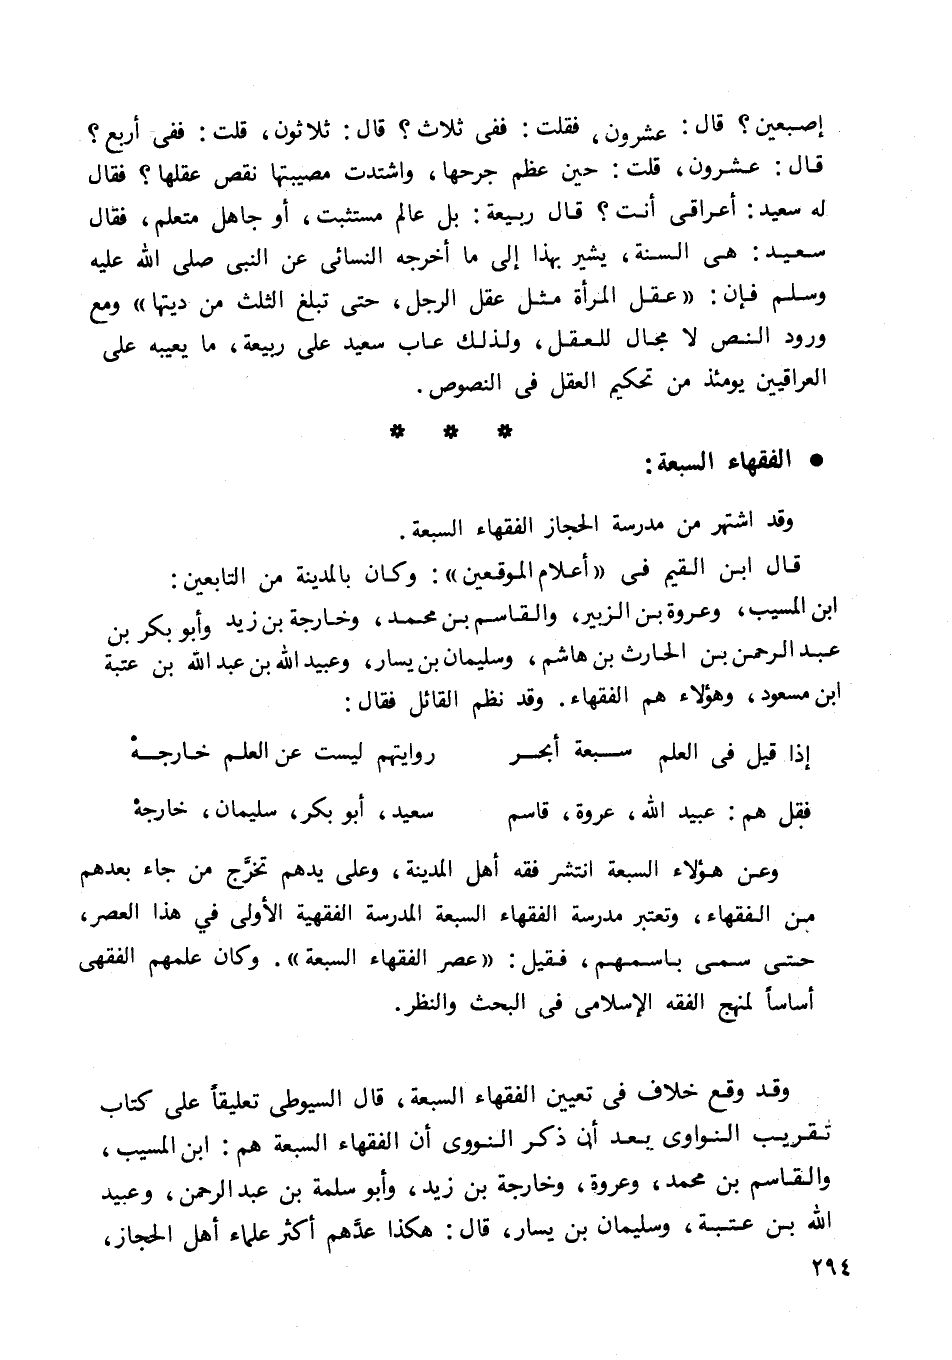 إصبعين؟ قال: عشرون، فقلت: ففى ثلاث؟ قال: ثلاثون، قلت: ففى أربع؟
قال: عشرون، قلت: حين عظم جرحها، واشتدت مصيبتها نقص عقلها؟ فقال
له سعيد: أعراقى أنت؟ قال ربيعة: بل عالم مستثبت، أو جاهل متعلم، فقال
سعيد: هى السنة، يشير بهذا إلى ما أخرجه النسائى عن النبى صلى الله عليه
وسلم فإن: «عقل المرأة مثل عقل الرجل، حتى تبلغ الثلث من ديتها» ومع
ورود النص لا مجال للعقل، ولذلك عاب سعيد على ربيعة، ما يعيبه على
العراقيين يومئذ من تحكيم العقل فى النصوص.
* * *
● الفقهاء السبعة:
وقد اشتهر من مدرسة الحجاز الفقهاء السبعة.
قال ابن القيم فى «أعلام الموقعين»: وكان بالمدينة من التابعين:
ابن المسيب، وعروة بن الزبير، والقاسم بن محمد، وخارجة بن زيد وأبو بكر بن
عبد الرحمن بن الحارث بن هاشم، وسليمان بن يسار، وعبيد الله بن عبد الله بن عتبة
ابن مسعود، وهؤلاء هم الفقهاء. وقد نظم القائل فقال:
إذا قيل فى العلم سبعة أبحر روايتهم ليست عن العلم خارجةْ
فقل هم: عبيد الله، عروة، قاسم سعيد، أبو بكر، سليمان، خارجةْ
وعن هؤلاء السبعة انتشر فقه أهل المدينة، وعلى يدهم تخرَّج من جاء بعدهم
من الفقهاء، وتعتبر مدرسة الفقهاء السبعة المدرسة الفقهية الأولى في هذا العصر،
حتى سمى باسمهم، فقيل: «عصر الفقهاء السبعة». وكان علمهم الفقهى
أساساً لمنهج الفقه الإسلامى فى البحث والنظر.
وقد وقع خلاف فى تعيين الفقهاء السبعة، قال السيوطى تعليقاً على كتاب
تقريب النواوى بعد أن ذكر النووى أن الفقهاء السبعة هم: ابن المسيب،
والقاسم بن محمد، وعروة، وخارجة بن زيد، وأبو سلمة بن عبد الرحمن، وعبيد
الله بن عتبة، وسليمان بن يسار، قال: هكذا عدَّهم أكثر علماء أهل الحجاز،
٢٩٤